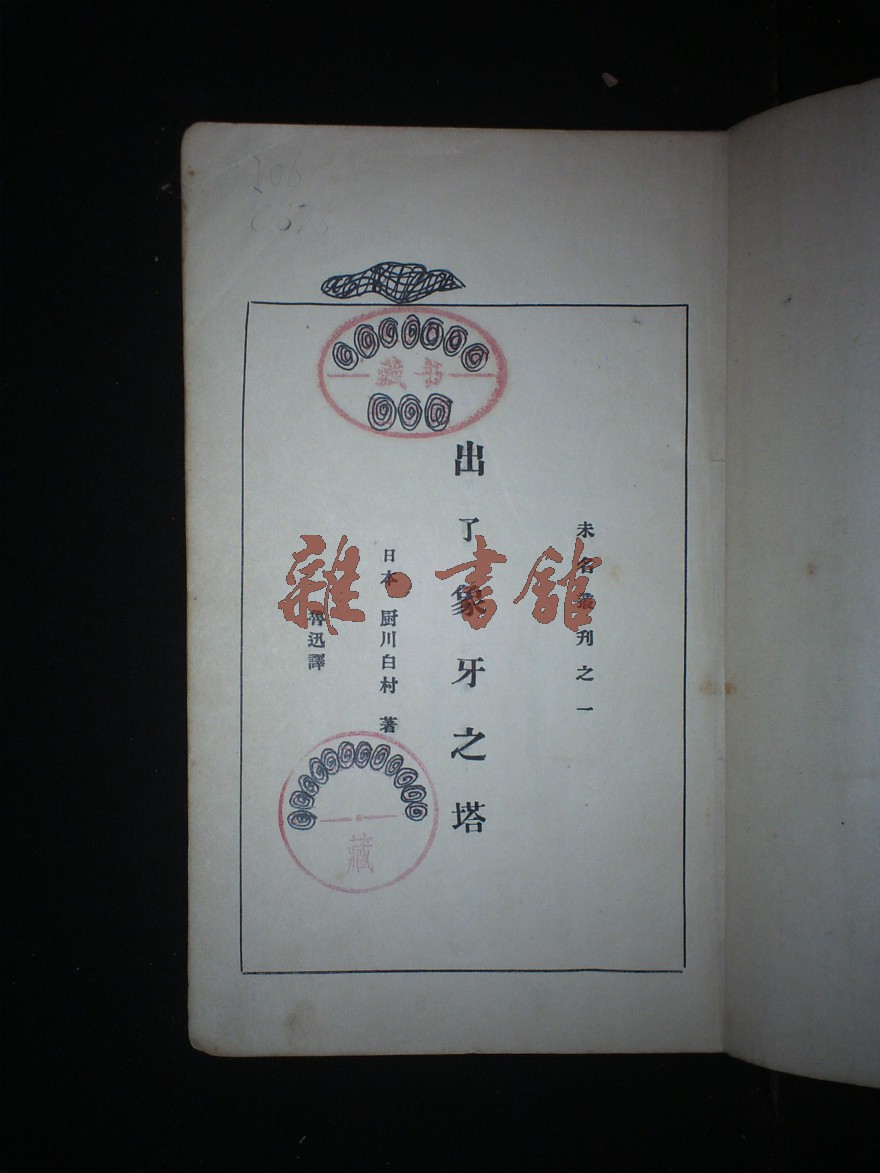 未名叢刊之一
出了象牙之塔
日本 厨川白村 著
魯迅譯
藏书
藏
雜·書館